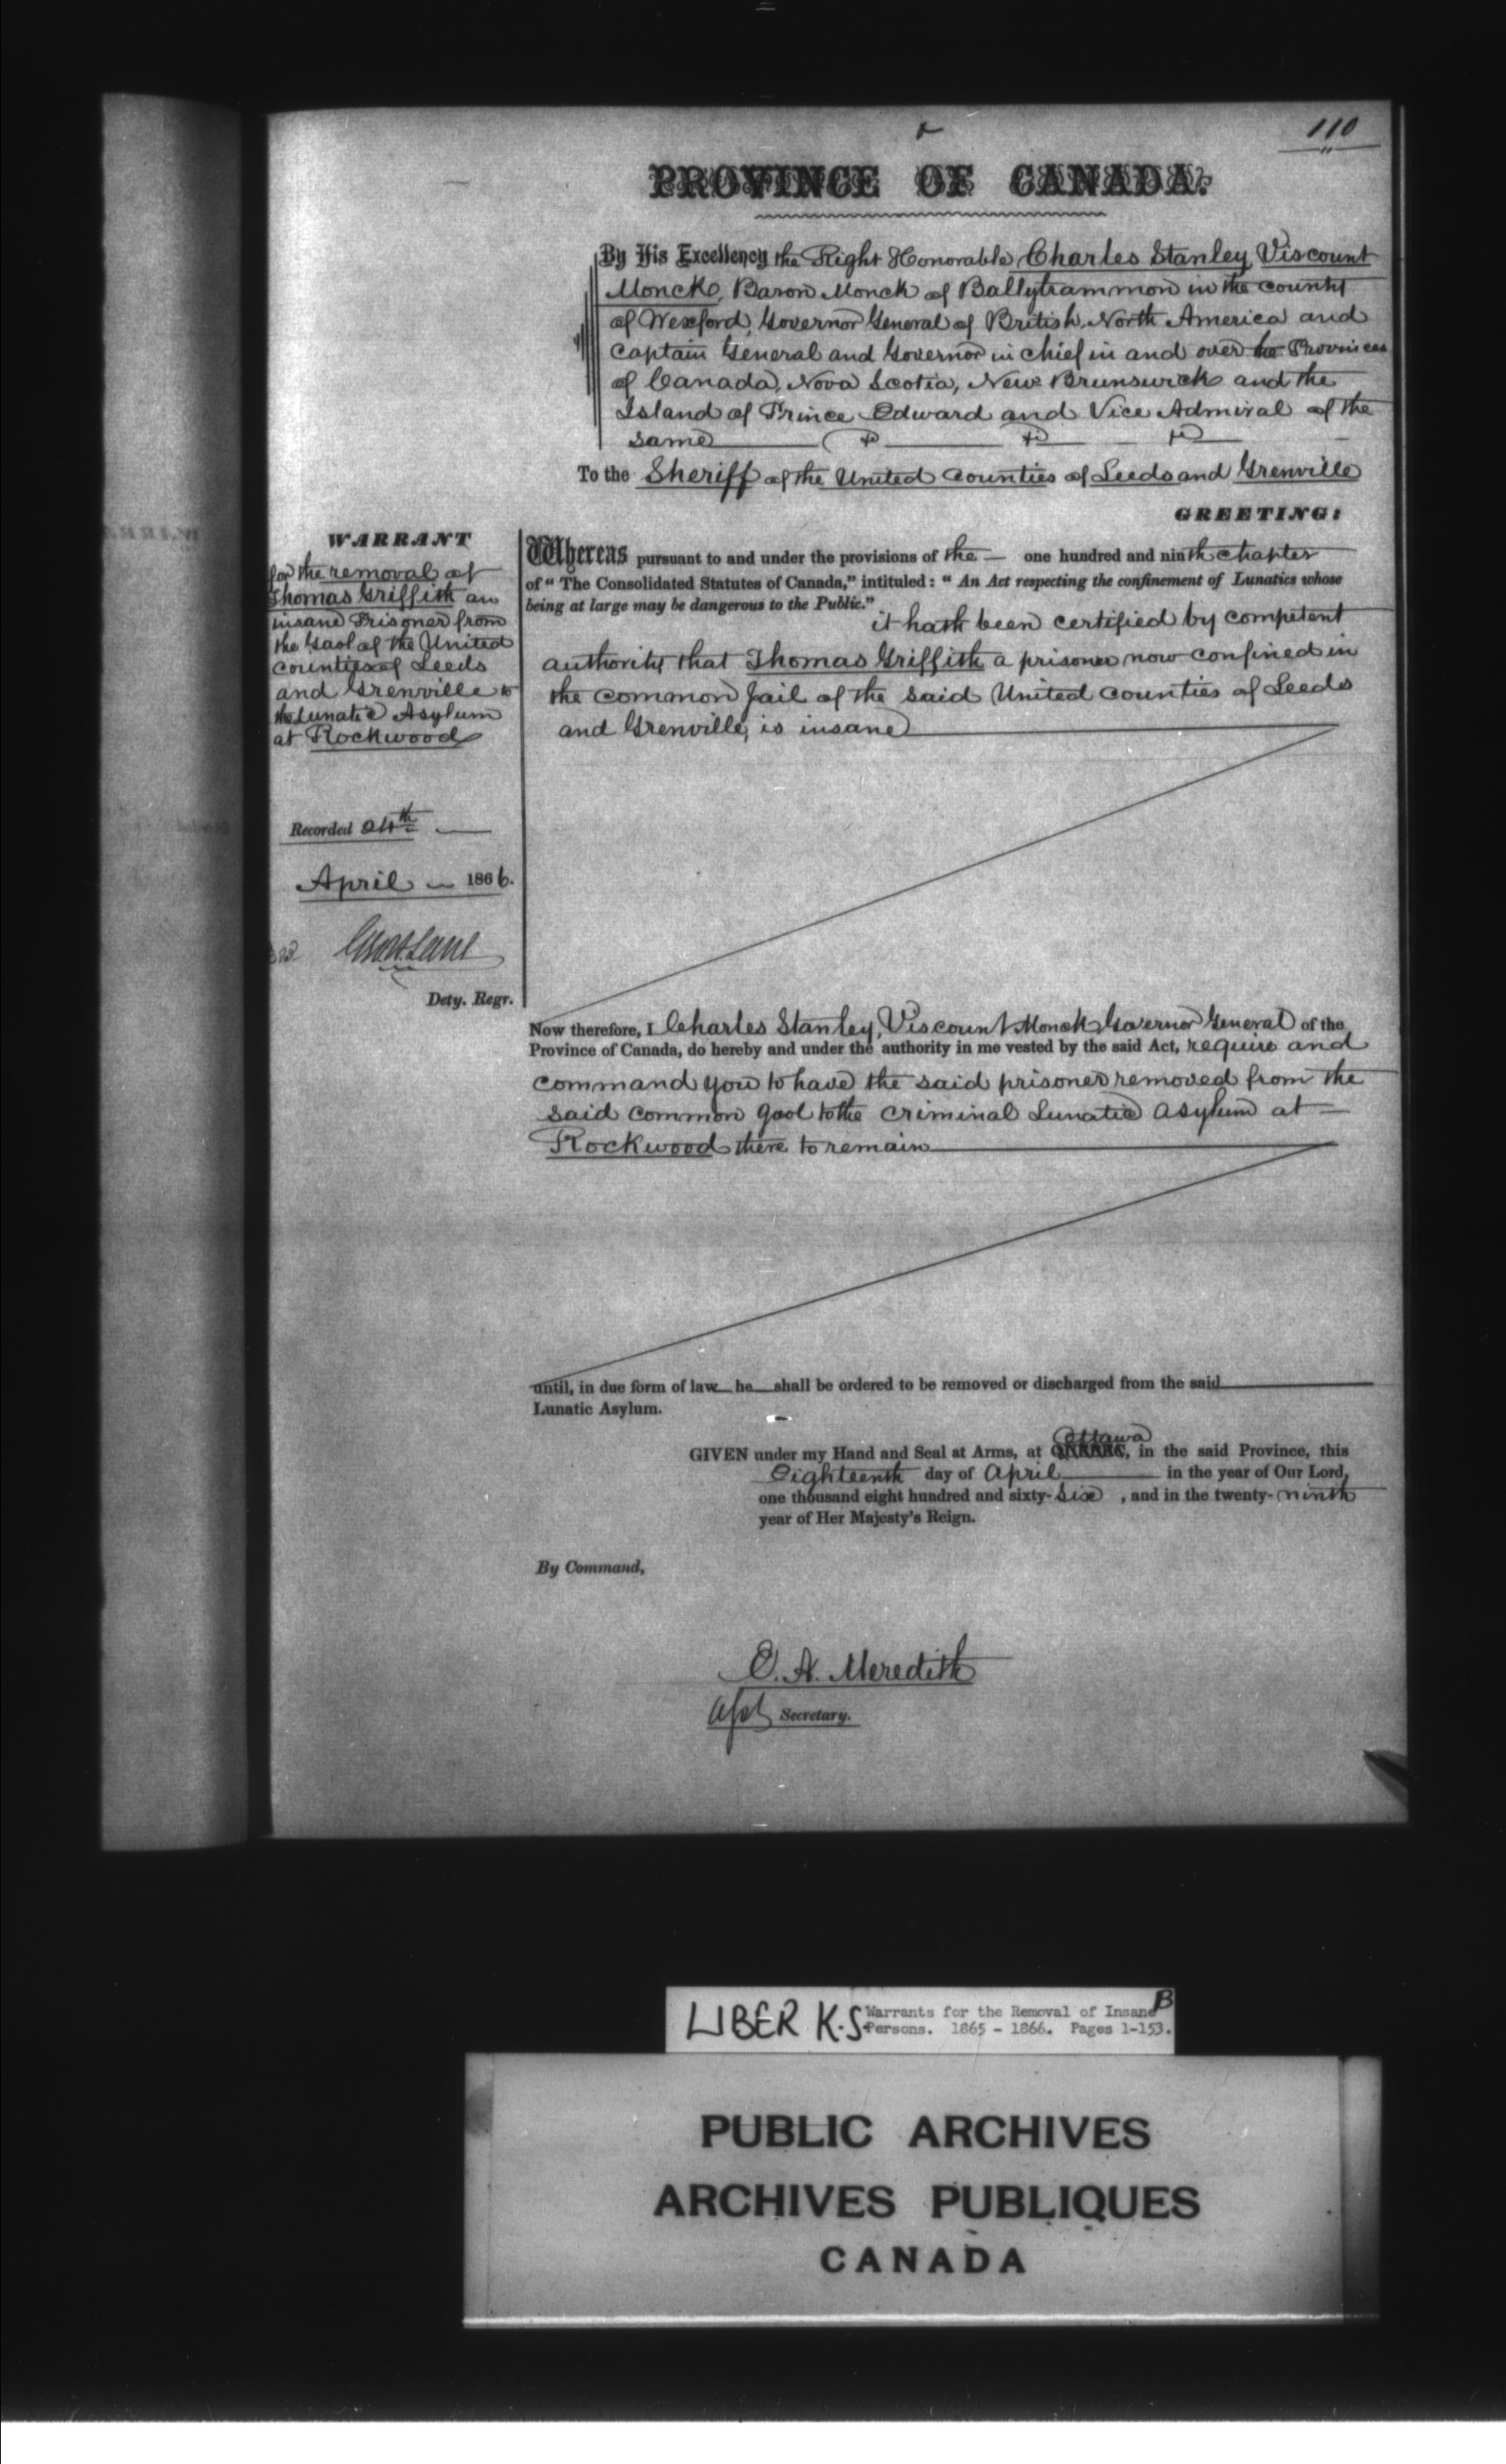 110
PROVINCE OF CANADA.
By His Excellency the Right Honorable Charles Stanley Viscount
Monck, Baron Monck of Ballytrammon in the county
of Wexford, Governor General of British North America and
Captain General and Governor in chief in and over the Provinces
of Canada, Nova Scotia, New Brunswick and the
Island of Prince Edward and Vice Admiral of the
same
To the Sheriff of the United Counties of Leeds and Grenville
GREETING:
WARRANT
for the removal of
Thomas Griffith an
insane Prisoner from
the Gaol of the United
counties of Leeds
and Grenville to
the Lunatic Asylum
at Rockwood
Recorded 24th
April 1866.
Dety. Regr.
Whereas pursuant to and under the provisions of the one hundred and ninth chapter
of "The Consolidated Statutes of Canada," intituled: "An Act respecting the confinement of Lunatics whose
being at large may be dangerous to the Public."
it hath been certified by competent
authority that Thomas Griffith a prisoner now confined in
the common Jail of the said United counties of Leeds
and Grenville, is insane
Now therefore, I Charles Stanley, Viscount Monck Governor General of the
Province of Canada, do hereby and under the authority in me vested by the said Act, require and
command you to have the said prisoner removed from the
said common gaol to the criminal Lunatic asylum at
Rockwood there to remain
until, in due form of law he shall be ordered to be removed or discharged from the said
Lunatic Asylum.
Ottawa
GIVEN under my Hand and Seal at Arms, at QUEBEC, in the said Province, this
Eighteenth day of April in the year of Our Lord,
one thousand eight hundred and sixty-six, and in the twenty-ninth
year of Her Majesty's Reign.
By Command,
E. A. Meredith
Asst Secretary.
LIBER K.S. Warrants for the Removal of Insane B
Persons. 1865 - 1866. Pages 1-153.
PUBLIC ARCHIVES
ARCHIVES PUBLIQUES
CANADA